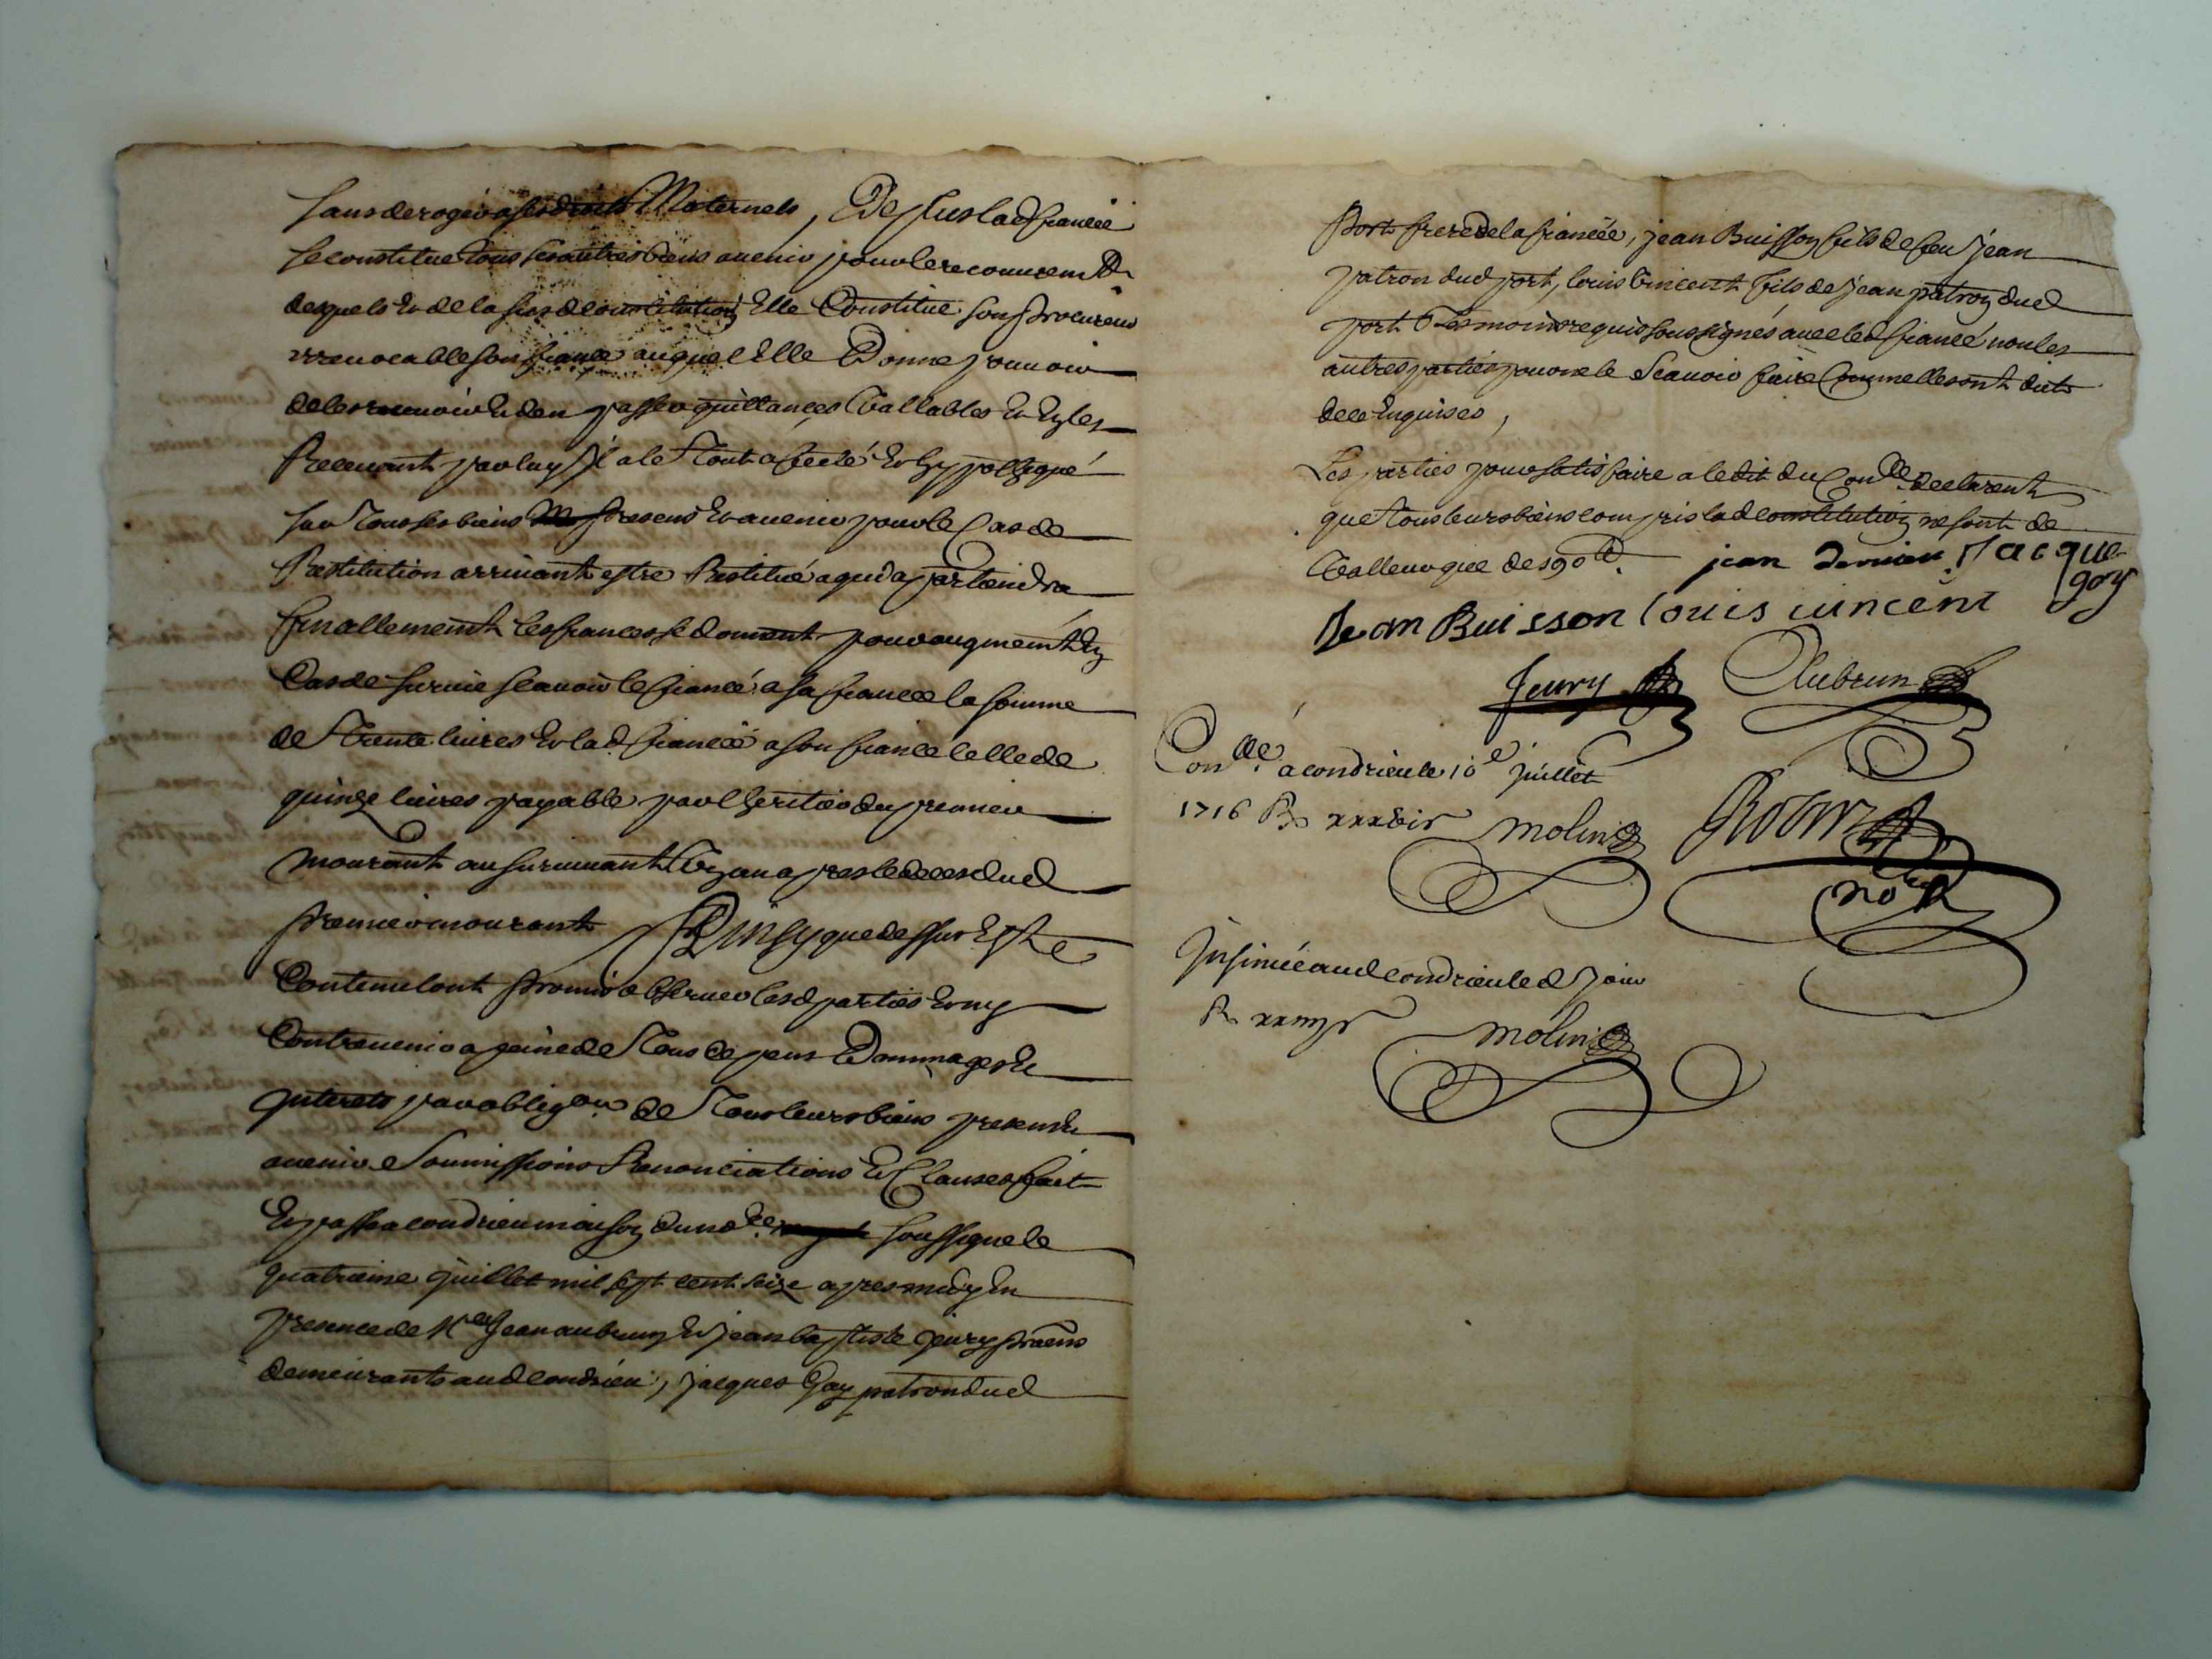 sans deroger a ses droits Maternels, De plus lad fiancée
se constitue tous ses autres biens avenir pour le recouvrem.t
desquels et de la susd constitution Elle Constitue son procureur
irrevocable son fiancé auquel Elle Donne pouvoir
de les recevoir et den passer quittances Vallables Et Eyles
Recevant par luy Jl a le Tout affecté et hyppothequé
sur Tous ses biens presens et avenir pour le Cas de
Restitution arrivant estre Restitué a qui dapartiendra
finallement les fiances se donnent pour augment En
Cas de survie scavoir le fiancé a sa fiancée la somme
de Trente livres Et lad fiancée a son fiancé celle de
quinze livres payable par lheritier du premier
mourant au survivant Un an apres le deces dud
premier mourant Ainsy que dessus Este
Contenu lont promis observer lesd parties et ny
Contrevenir a peine de Tous depens Dommages Et
Interets par obligon de Tous leurs biens presens et
avenir Soumissions Renonciations Et Clauses fait
Et passé a condrieu maison du no.re soussigne le
quatrieme juillet mil sept cent seize apres midy En
presence de M.es Jean aubrun Et jean baptiste jeury praens
demeurants aud condrieu, jacques Gay patron dud
Port frere de la fiancée, jean Buisson fils de feu jean
patron dud port, louis Vincent fils de jean patron dud
port Tesmoins requis soussignés avec led fiancé non les
autres parties pour ne le Scavoir faire Comme elles ont dit
de ce Enquises,
Les parties pour satisfaire a ledit du Con.lle declarent
que Tous leurs biens compris lad constitution ne sont de
Valleur que de 190 tt. jean dernieu Jacque
goy
Jean Buisson louis vincent
Jeury Aubrun
Con.llé a condrieu le 10.e juillet
1716 R
molin
no.re R
Insinué aud condrieu led jour
R
molin